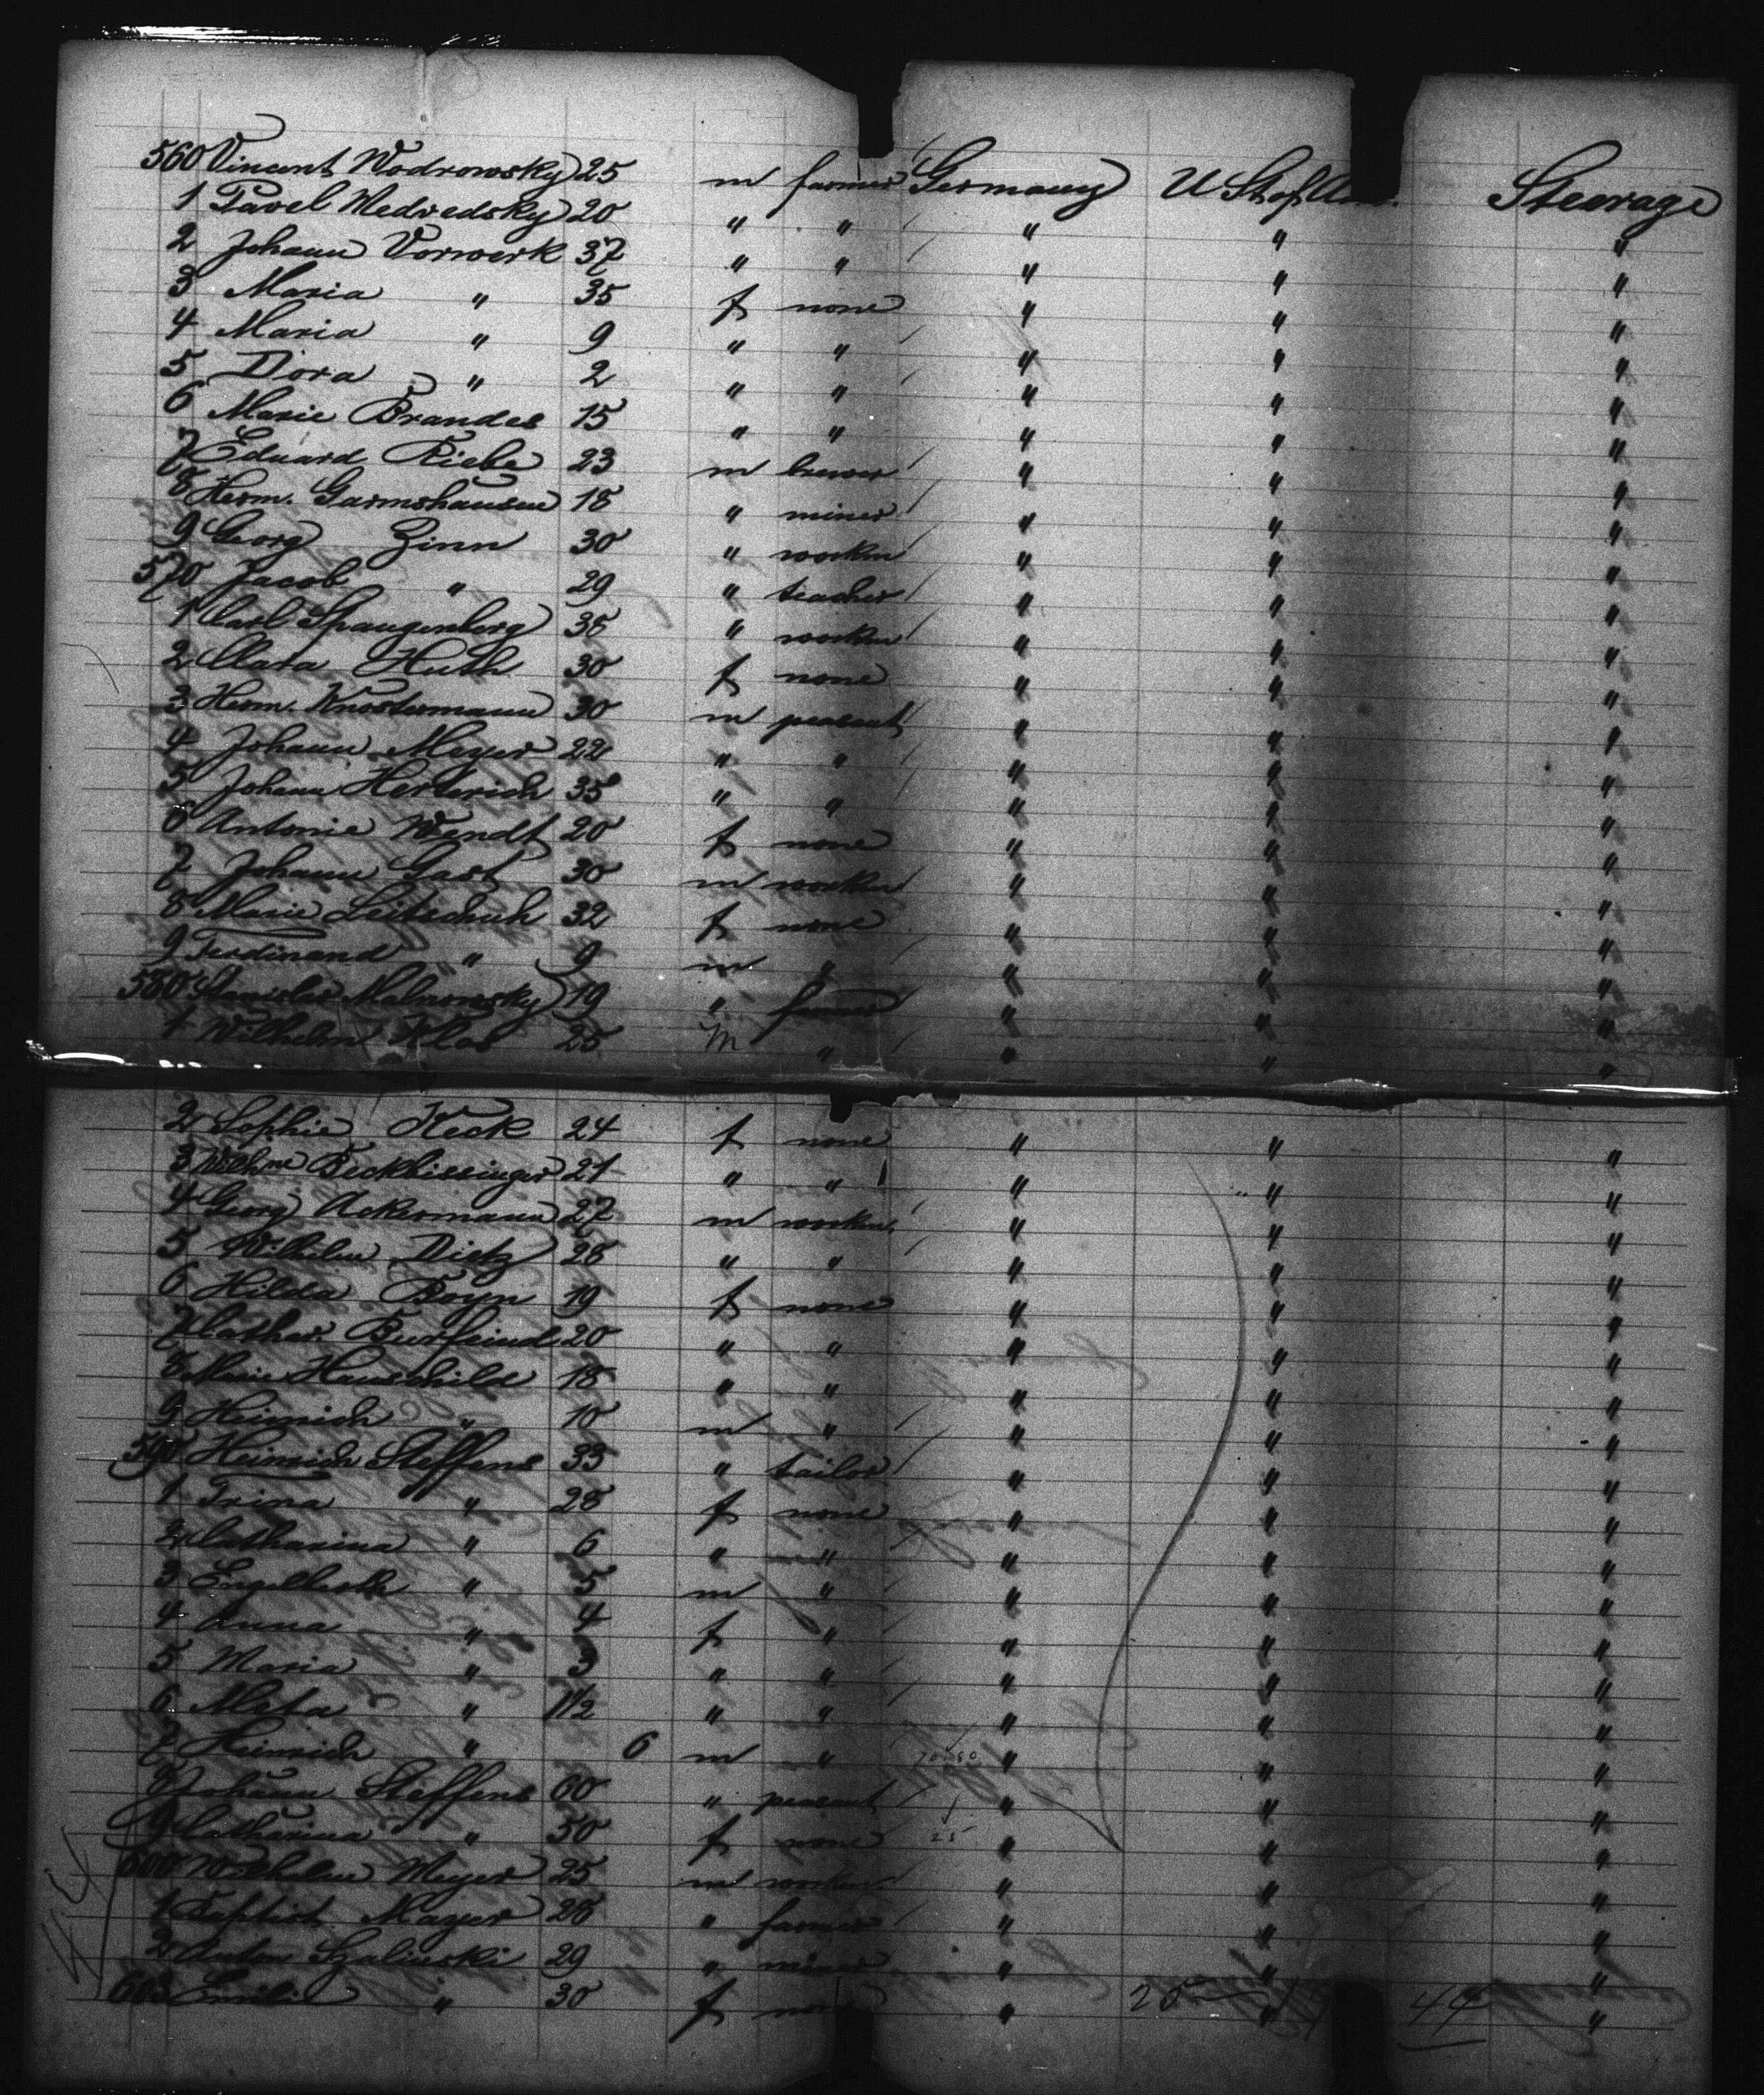 560 Vincent Wodrowsky 25 m farmer Germany U St of Am. Steerage
1 Pavel Medvedsky 20 " " " " "
2 Johann Vorwerk 37 " " " " "
3 Maria " 35 f none " " "
4 Maria " 9 " " " " "
5 Dora " 2 " " " " "
6 Marie Brandes 15 " " " " "
7 Eduard Riebe 23 m brewer " " "
8 Herm. Garmshausen 18 " miner " " "
9 Georg Zinn 30 " workm " " "
570 Jacob " 29 " teacher " " "
1 Carl Spangenberg 38 " workm " " "
2 Clara Huth 30 f none " " "
3 Herm. Knostermann 30 m peasant " " "
4 Johann Meyer 22 " " " " "
5 Johann Herterich 35 " " " " "
6 Antonie Wendt 20 f none " " "
7 Johann Gast 30 m workm " " "
8 Marie Leitschuh 32 f none " " "
9 Ferdinand " 9 m " " " "
580 Stanislas Malnowsky 19 " farmer " " "
1 Wilhelm Klas 25 m " " " "
2 Sophie Heck 24 f none " " "
3 Wilhme Beckbissinger 21 " " " " "
4 Georg Ackermann 27 m workm " " "
5 Wilhelm Dietz 28 " " " " "
6 Hilda Boyn 19 f none " " "
7 Cathar. Burfeind 20 " " " " "
8 Marie Hauschild 18 " " " " "
9 Heinrich " 10 m " " " "
590 Heinrich Steffens 33 " tailor " " "
1 Trina " 28 f none " " "
2 Catharina " 6 " " " " "
3 Engelberth " 5 m " " " "
4 Anna " 4 f " " " "
5 Maria " 3 " " " " "
6 Meta " 1 1/2 " " " " "
7 Heinrich " 6 m " " " "
8 Johann Steffens 60 " peasant " " "
9 Catharina " 50 f none 25 " " "
600 Wilhelm Meyer 25 m workm " " "
1 Mayer 28 " farmer " " "
2 Anton Szalinski 29 " miner " " "
603 Emilie " 30 f none " " "
25 44